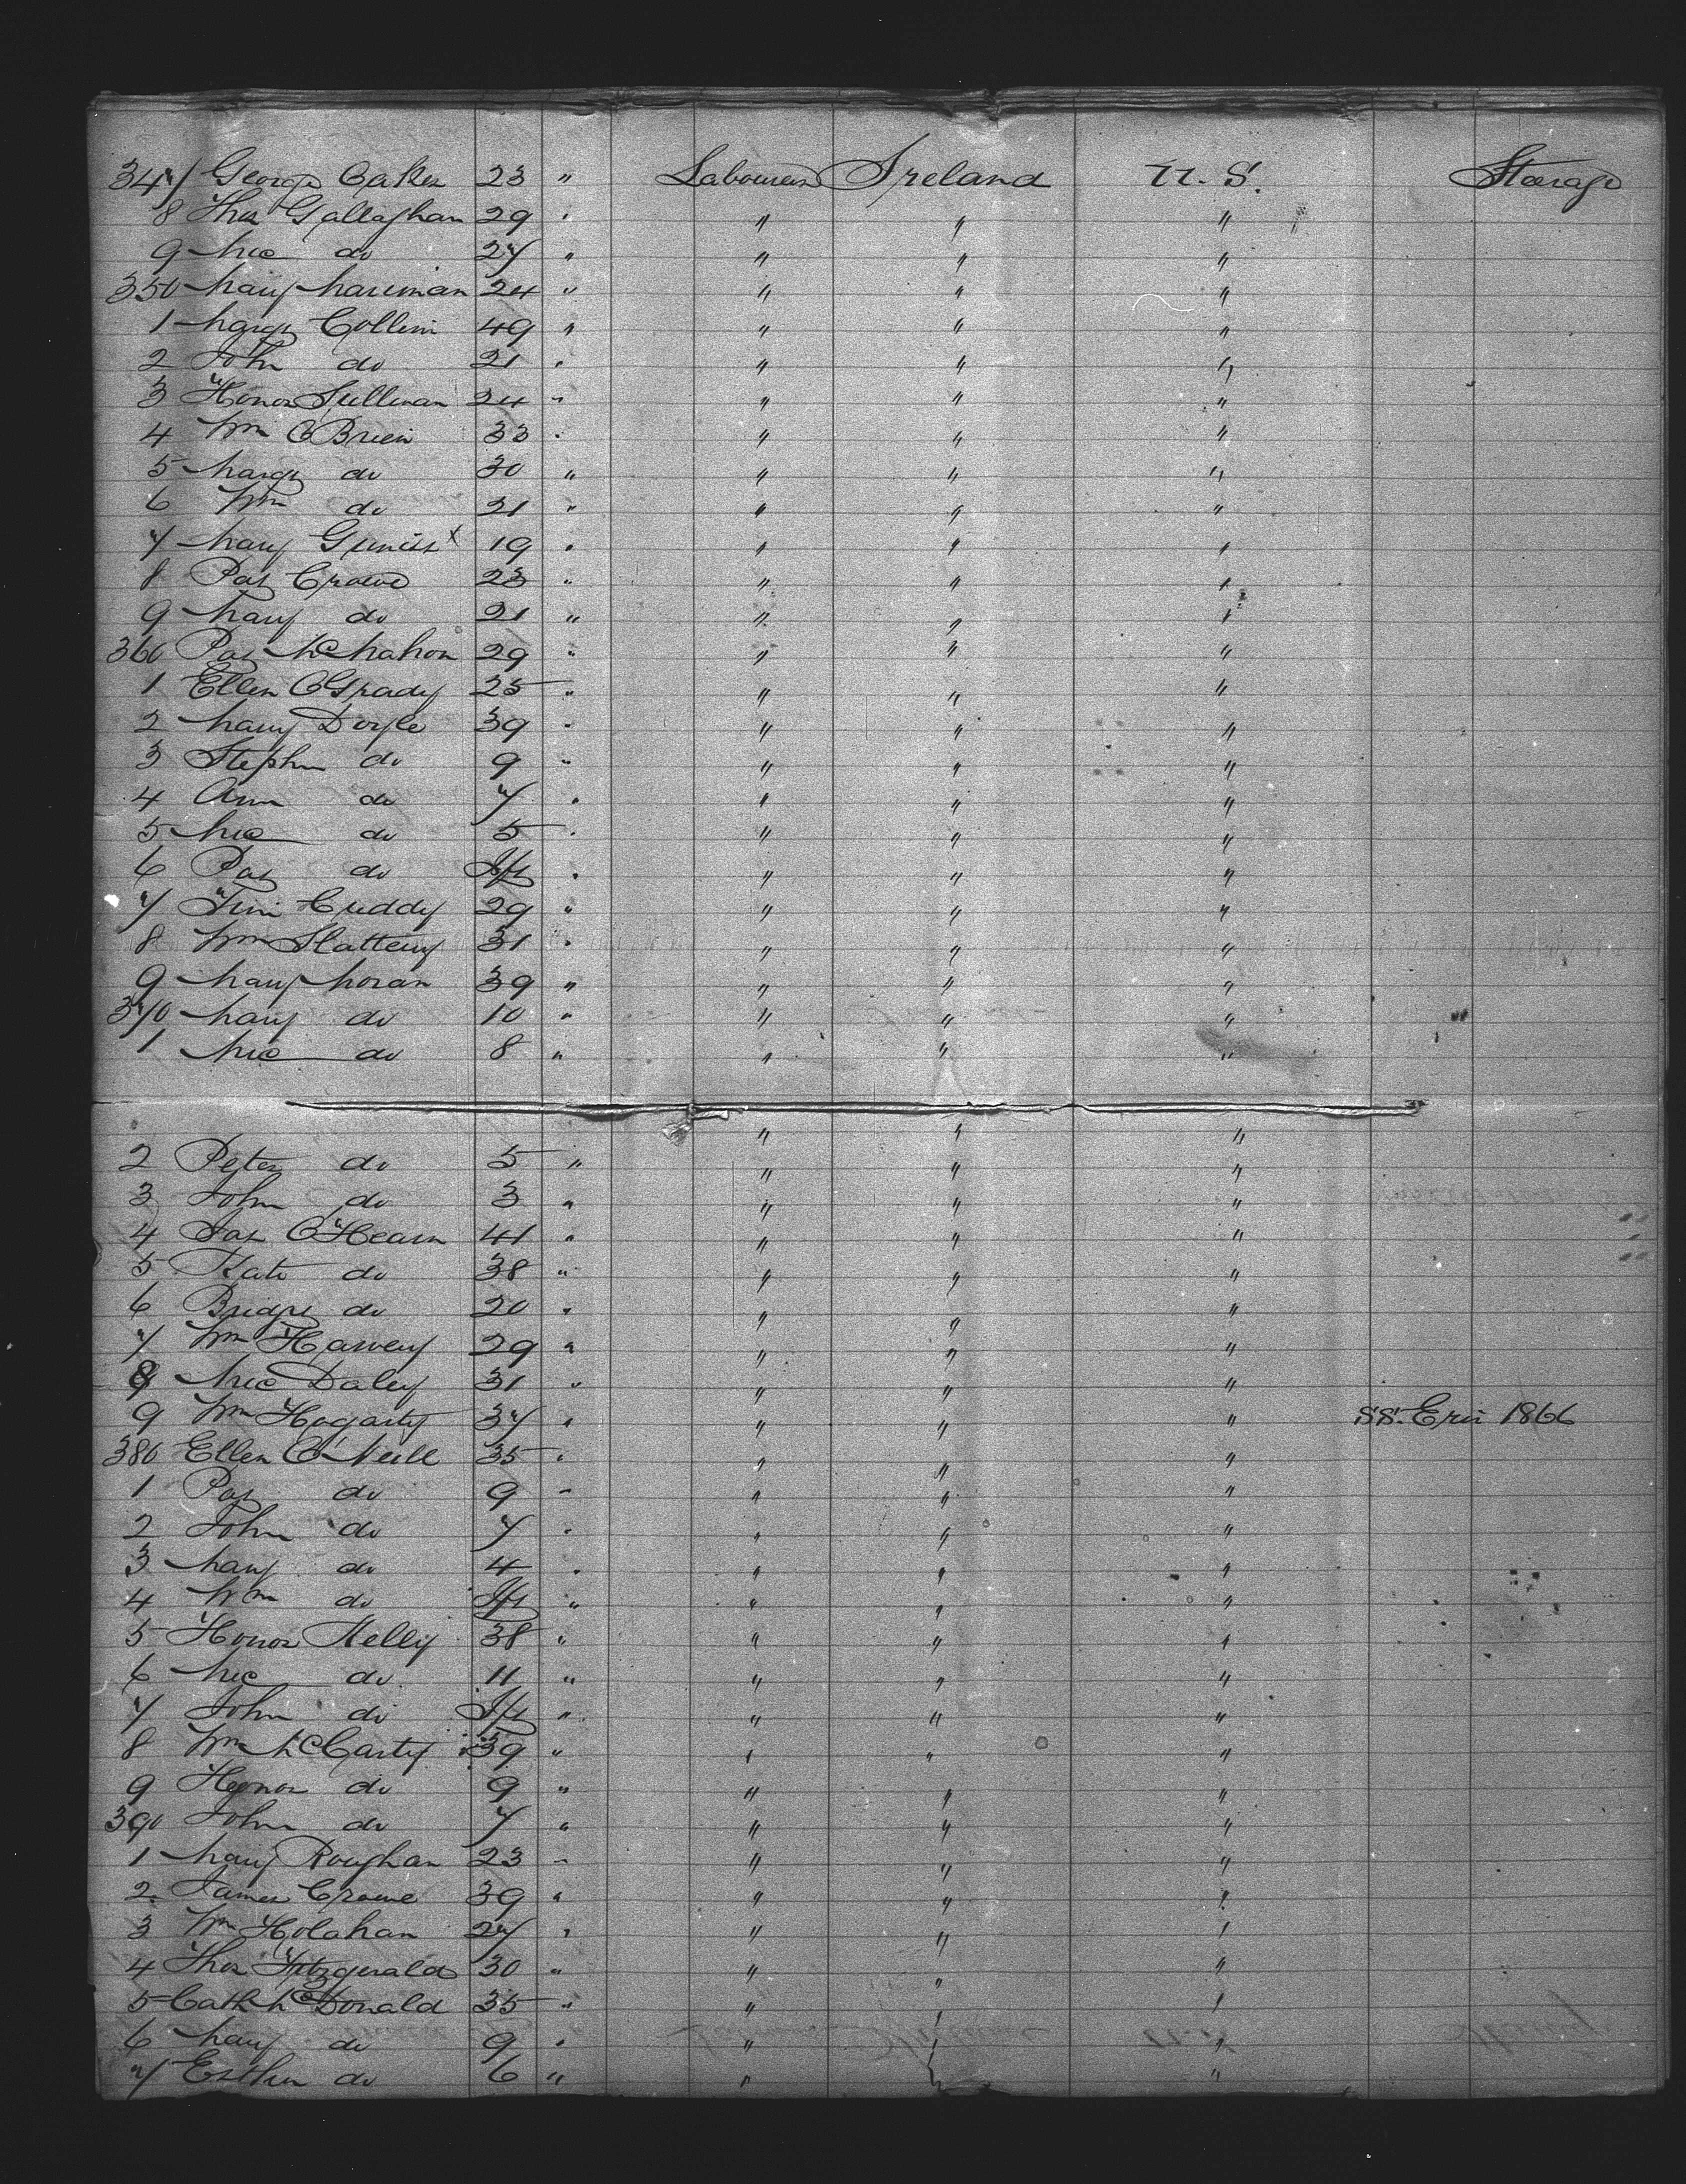 347 George Oakes 23 " Labourers Ireland U.S. Steerage
8 Thos Gallaghan 29 " " " "
9 Mic do 27 " " " "
350 Mary Mariman 24 " " " "
1 Margt Collins 49 " " " "
2 John do 21 " " " "
3 Honor Sullivan 24 " " " "
4 Wm O'Brien 33 " " " "
5 Margt do 30 " " " "
6 Wm do 21 " " " "
7 Mary x 19 " " " "
8 Pat Crowe 23 " " " "
9 Mary do 21 " " " "
360 Pat McMahon 29 " " " "
1 Ellen O'Grady 25 " " " "
2 Mary Doyle 39 " " " "
3 Stephn do 9 " " " "
4 Ann do 7 " " " "
5 Mic do 5 " " " "
6 Pat do Ift " " " "
7 Tim Cuddy 29 " " " "
8 Wm Slattery 31 " " " "
9 Mary Moran 39 " " " "
370 Mary do 10 " " " "
1 Mic do 8 " " " "
" " "
2 Peter do 5 " " " "
3 John do 3 " " " "
4 Jas O'Hearn 41 " " " "
5 Kate do 38 " " " "
6 Bridgt do 20 " " " "
7 Wm Harvey 29 " " " "
8 Mic Daley 31 " " " "
9 Wm Hogarty 37 " " " " S.S. Erin 1866
380 Ellen O'Neill 35 " " " "
1 Pat do 9 " " " "
2 John do 7 " " " "
3 Mary do 4 " " " "
4 Wm do Ift " " " "
5 Honor Kelly 38 " " " "
6 Mic do 11 " " " "
7 John do Ift " " " "
8 Wm McCarty 39 " " " "
9 Honor do 9 " " " "
390 John do 7 " " " "
1 Mary Roughan 23 " " " "
2 James Crowe 39 " " " "
3 Wm Holahan 27 " " " "
4 Thos Fitzgerald 30 " " " "
5 Cath McDonald 35 " " " "
6 Mary do 9 " " " "
7 Esther do 6 " " " "